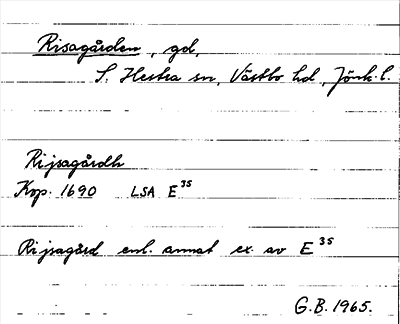 Risagården, gd,
S. Hestra sn, Västbo hd, Jönk. l.
Rijsagårdh
Kop. 1690 LSA E³⁵
Rijsagård enl. annat ex. av E³⁵
G.B. 1965.